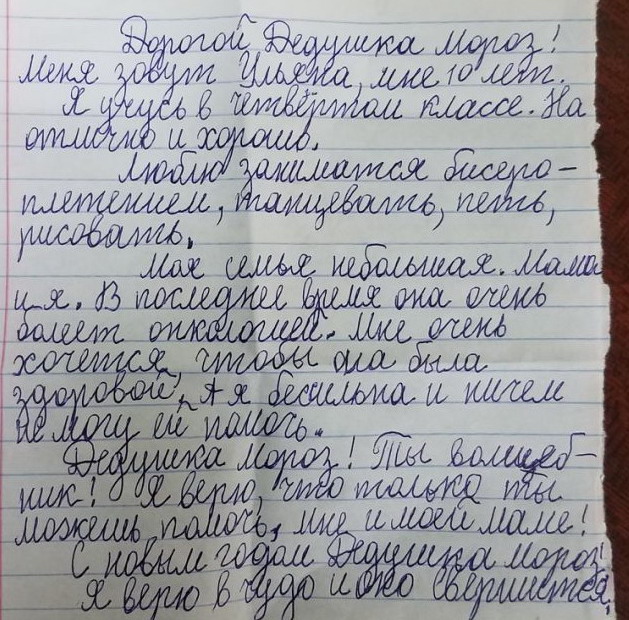 Дорогой Дедушка Мороз!
Меня зовут Ульяна, мне 10 лет.
Я учусь в четвёртом классе. На
отлично и хорошо.
Люблю заниматся бисеро-
плетением, танцевать, петь,
рисовать.
Моя семья небольшая. Мама
и я. В последнее время она очень
болеет онкологией. Мне очень
хочется, чтобы она была
здоровой, А я бесильна и ничем
не могу ей помочь.
Дедушка мороз! Ты волшеб-
ник! Я верю, что только ты
можешь помочь, мне и моей маме!
С новым годом Дедушка мороз!
Я верю в чудо и оно свершится.